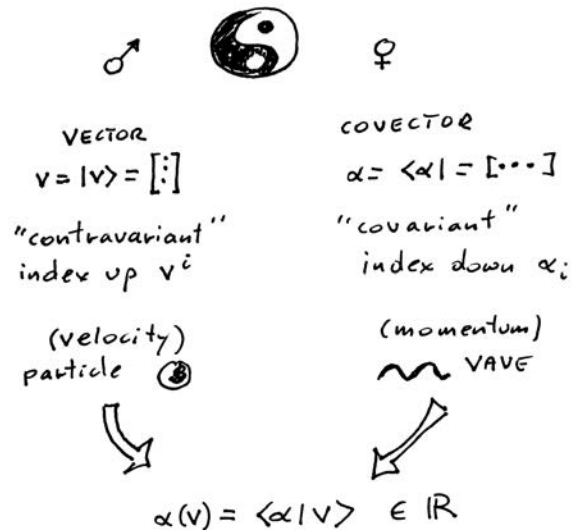 ♂ ☯ ♀
VECTOR
v = |v> = [⋮]
"contravariant"
index up vⁱ
(velocity)
particle
COVECTOR
α = <α| = [···]
"covariant"
index down αᵢ
(momentum)
VAVE
α(v) = <α|v> ∈ ℝ